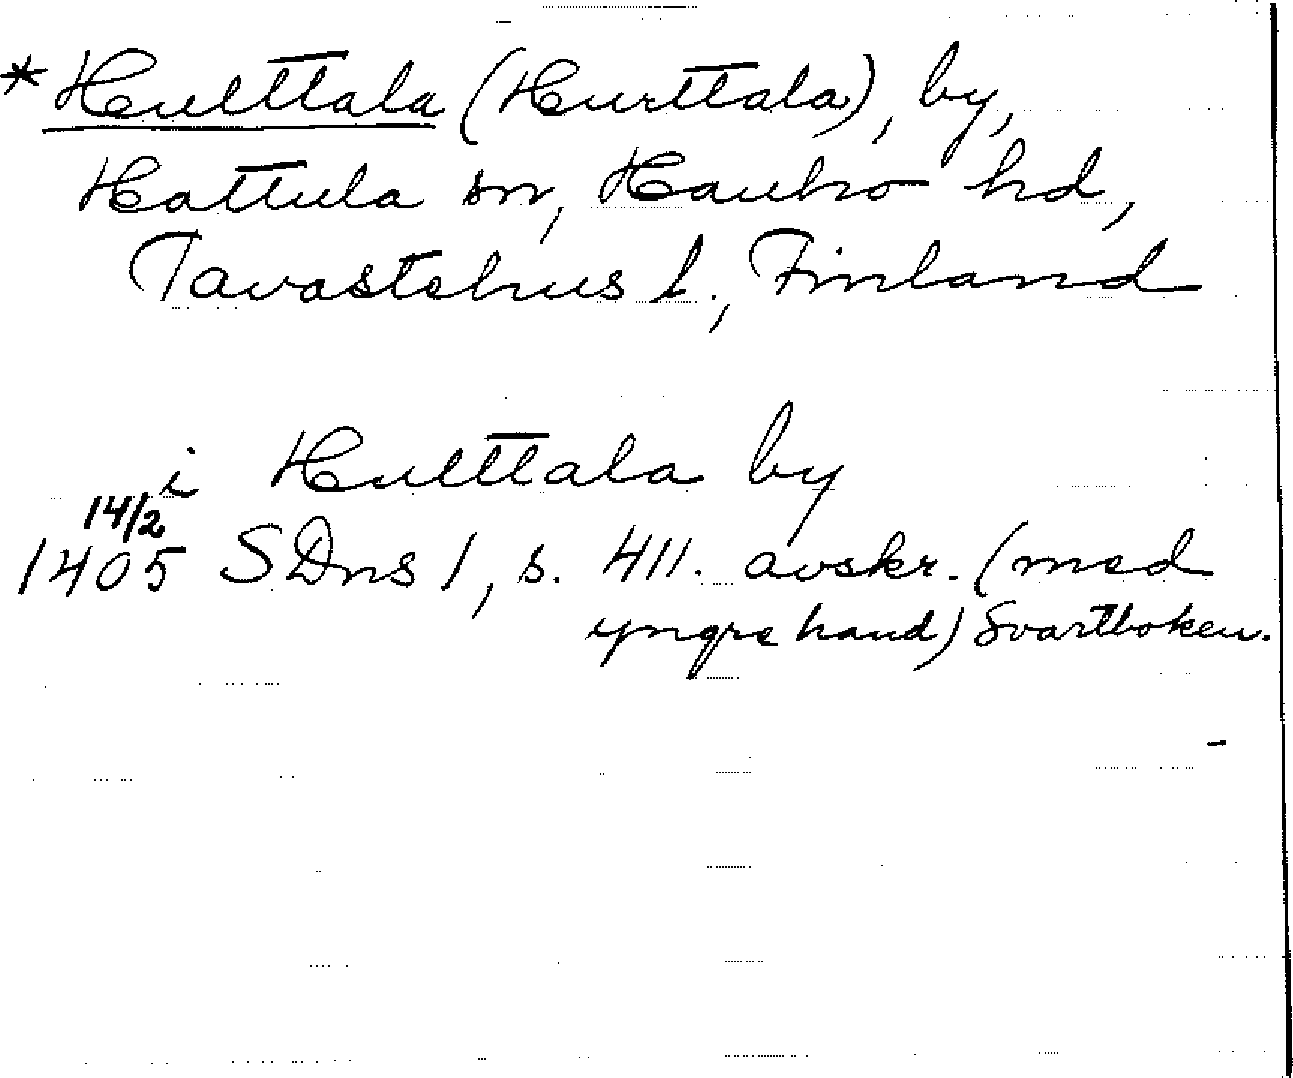 * Hulttala (Hurttala), by,
Hattula sn, Hauho hd,
Tavastehus l., Finland
i Hulttala by
14/2
1405 SDns 1, s. 411. avskr. (med
yngre hand) Svartboken.